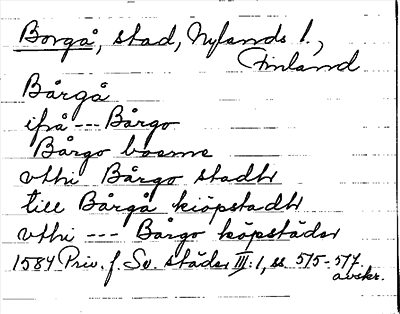 Borgå, stad, Nylands l.,
Finland
Bårgå
ifrå --- Bårgo
Bårgo boerne
vthi Bårgo stadh
till Bårgå kiöpstadh
vthi --- Bårgo köpstäder
1584 Priv. f. Sv. städer III:1, ss 515-517
avskr.